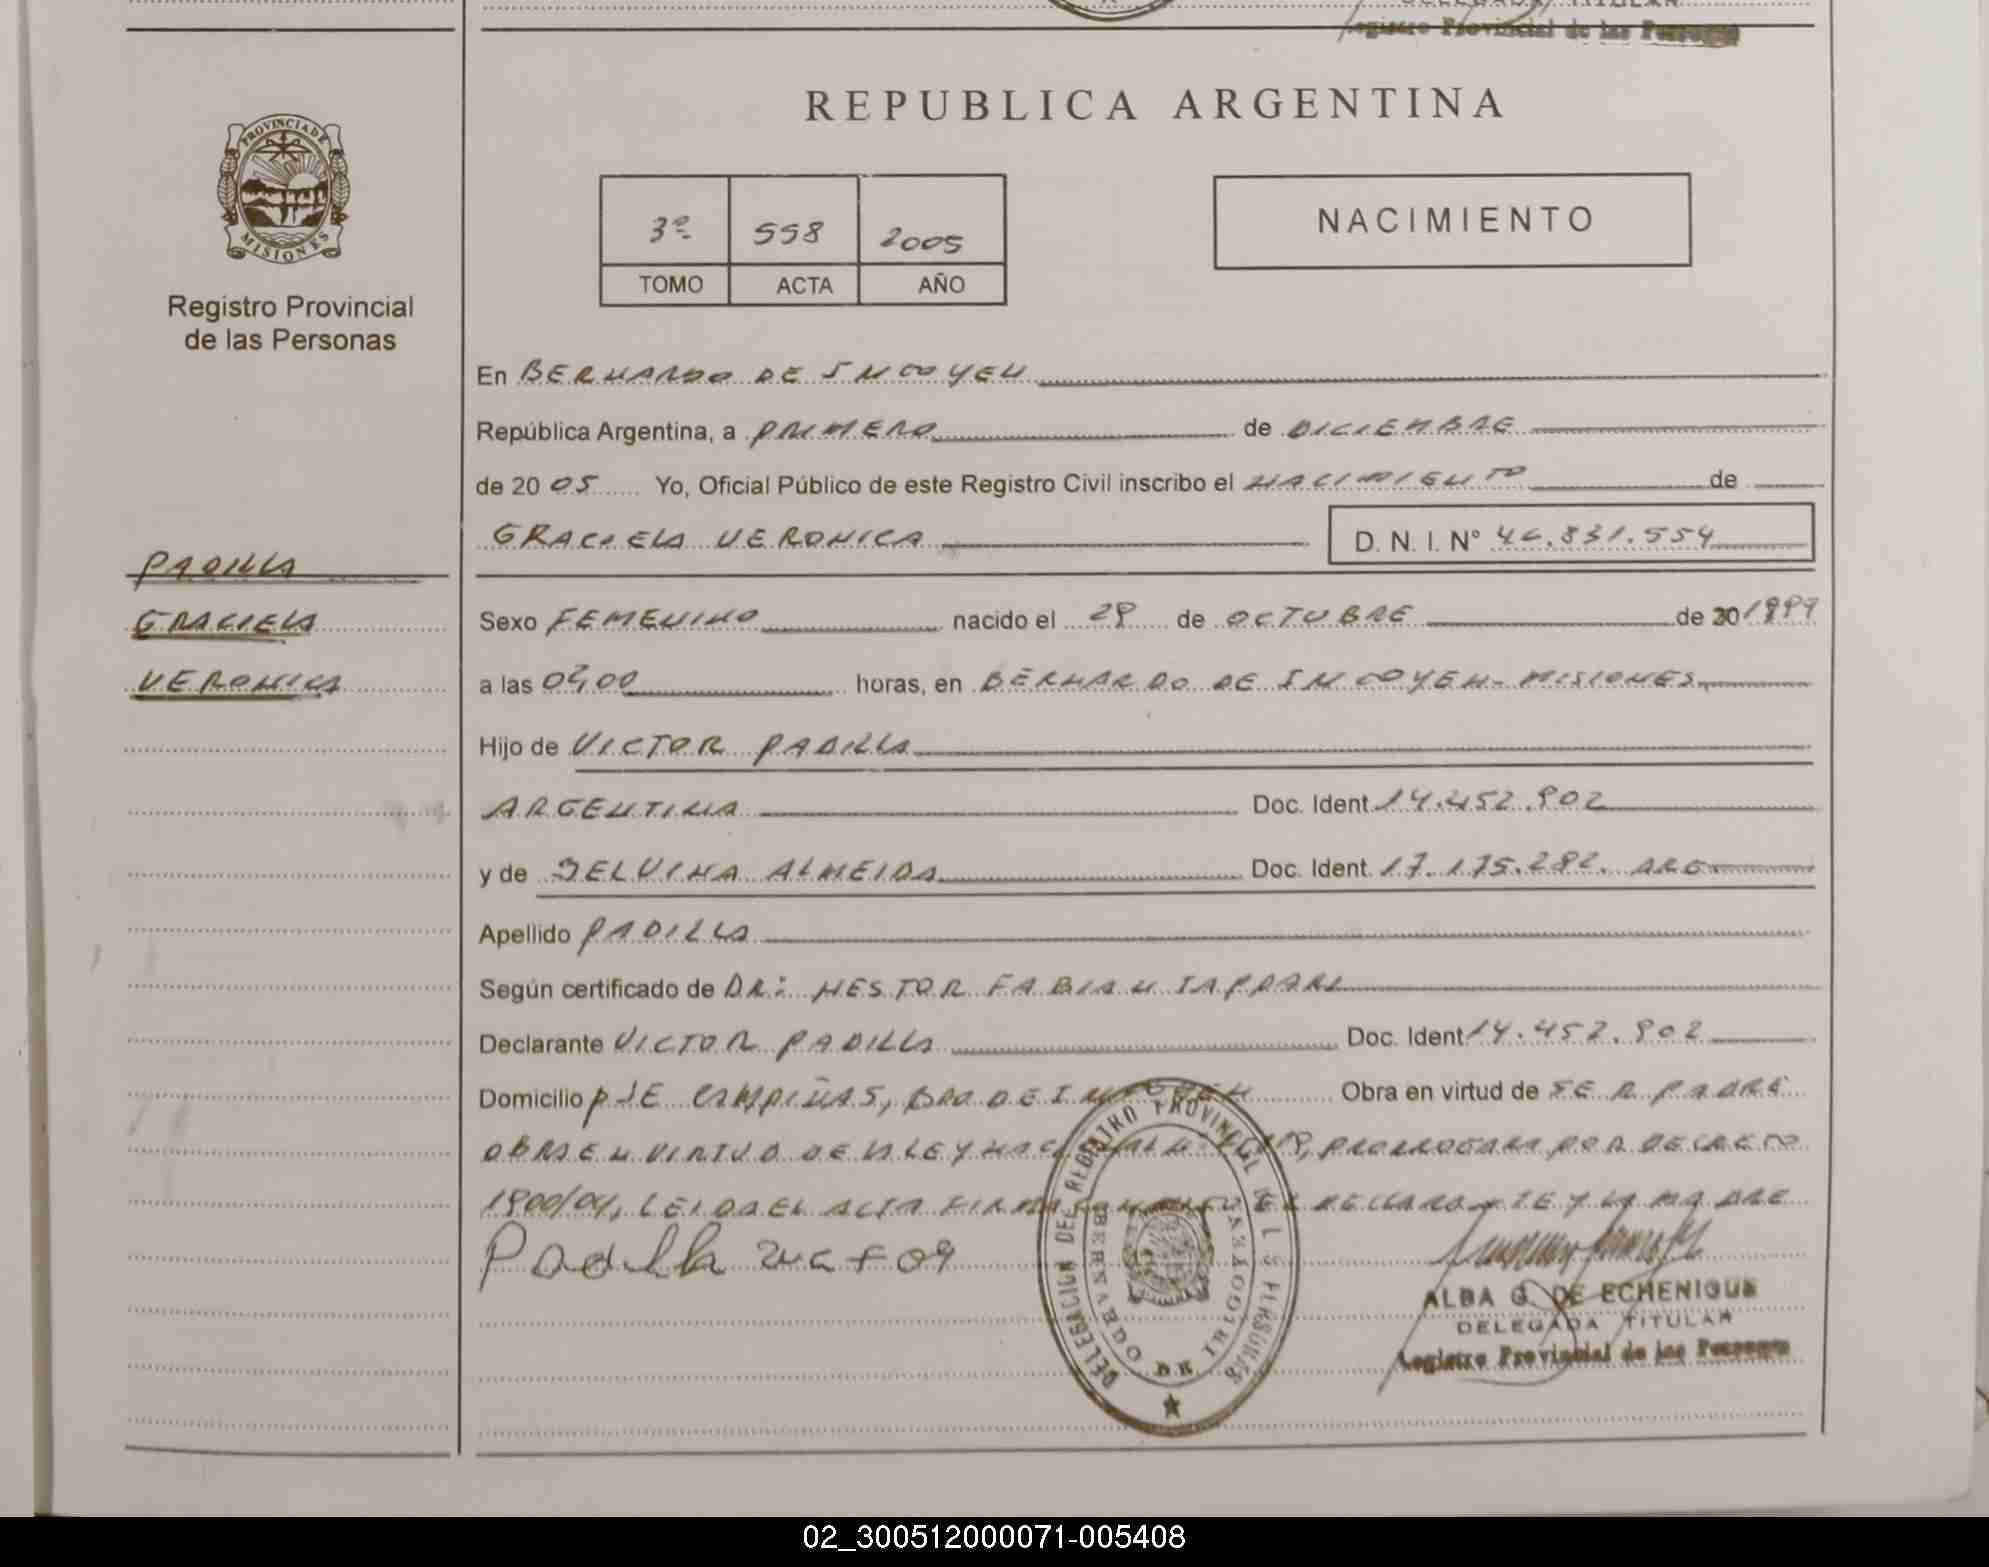 Registro Provincial de las Personas
REPUBLICA ARGENTINA
PROVINCIA DE MISIONES
Registro Provincial
de las Personas
3º 558 2005
TOMO ACTA AÑO
NACIMIENTO
En BERNARDO DE IRIGOYEN
República Argentina, a PRIMERO de DICIEMBRE
de 2005 Yo, Oficial Público de este Registro Civil inscribo el NACIMIENTO de
GRACIELA VERONICA D. N. I. Nº 46.831.554
PADILLA
GRACIELA
VERONICA
Sexo FEMENINO nacido el 29 de OCTUBRE de 20 1999
a las 04,00 horas, en BERNARDO DE IRIGOYEN - MISIONES
Hijo de VICTOR PADILLA
ARGENTINA Doc. Ident 14.452.902
y de DELVINA ALMEIDA Doc. Ident. 17.175.282. ARG
Apellido PADILLA
Según certificado de DR: NESTOR FABIAN
Declarante VICTOR PADILLA Doc. Ident 14.452.902
Domicilio PJE CAMPIÑAS, BDO DE IRIGOYEN Obra en virtud de SER PADRE
OBRA EN VIRTUD DE LA LEY NACIONAL Nº PRORROGADA POR DECRETO
1900/04, LEIDA EL ACTA FIRMA EL DECLARANTE Y LA MADRE
Padilla victor
DELEGACION DEL REGISTRO PROVINCIAL DE LAS PERSONAS
BERNARDO DE IRIGOYEN
ALBA G. DE ECHENIQUE
DELEGADA TITULAR
Registro Provincial de las Personas
02_300512000071-005408